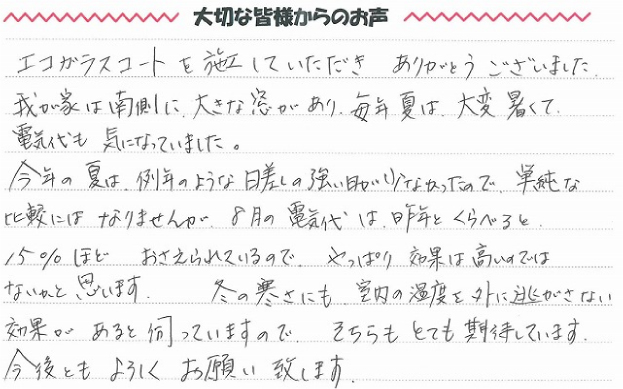 大切な皆様からのお声
エコガラスコートを施工していただき ありがとうございました.
我が家は南側に、大きな窓があり、毎年夏は、大変暑くて、
電気代も 気になっていました。
今年の夏は、例年のような日差しの強い日が少なかったので、単純な
比較にはなりませんが、8月の電気代は、昨年とくらべると、
15%ほど おさえられているので、やっぱり 効果は高いのでは
ないかと思います. 冬の寒さにも、室内の温度を外に逃がさない
効果が あると伺っていますので、そちらも とても期待しています.
今後とも よろしく お願い致します.